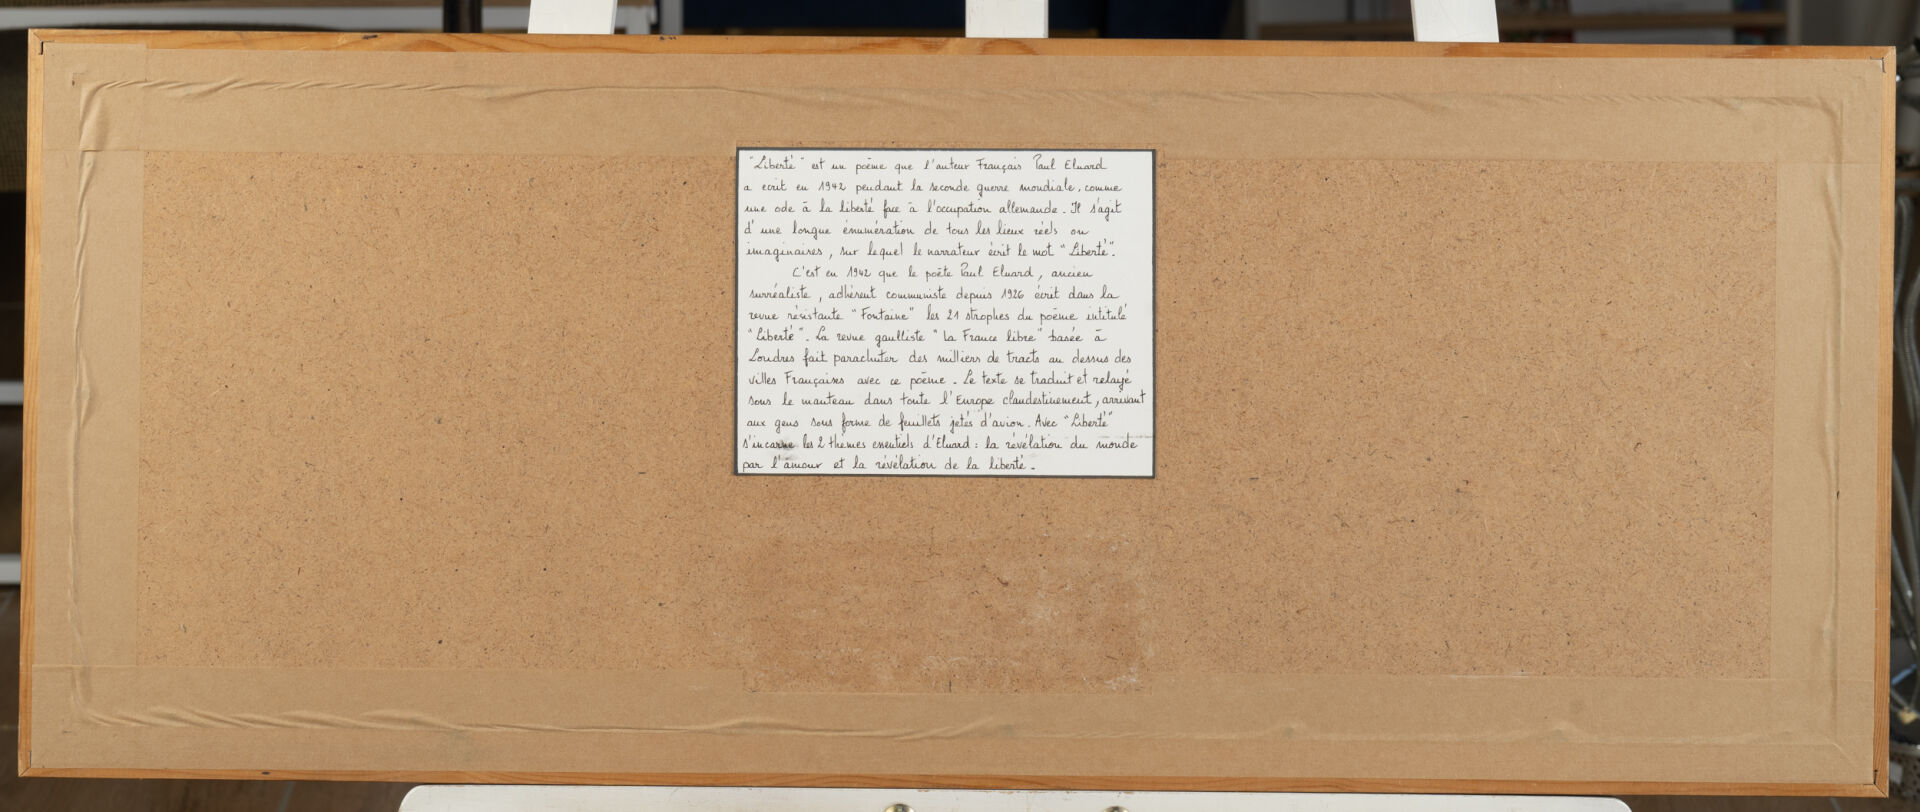 "Liberté" est un poème que l'auteur Français Paul Eluard
a ecrit en 1942 pendant la seconde guerre mondiale, comme
une ode à la liberté face à l'occupation allemande. Il s'agit
d'une longue énumération de tous les lieux réels ou
imaginaires, sur lequel le narrateur écrit le mot "Liberté".
C'est en 1942 que le poète Paul Eluard, ancien
surréaliste, adhèrent communiste depuis 1926 écrit dans la
revue résistante "Fontaine" les 21 strophes du poème intitulé
"Liberté". La revue gaulliste "la France libre" basée à
Londres fait parachuter des milliers de tracts au dessus des
villes Françaises avec ce poème. Le texte se traduit et relayé
sous le manteau dans toute l'Europe clandestinement, arrivant
aux gens sous forme de feuillets jetés d'avion. Avec "Liberté"
s'incarne les 2 thèmes essentiels d'Eluard : la révélation du monde
par l'amour et la révélation de la liberté.